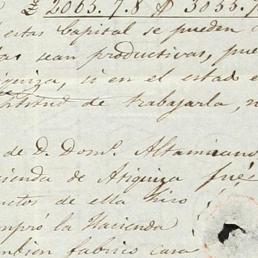 2065.7.8 $ 3055.7
estas Capital se pueden
sean productivas, pue
si en el estado
de trabajarla, n
de D. Dom.º Altamirano
cienda de Atequiza fué
uctos de ella hizo
mpró la Hacienda
mbien fabricó casa